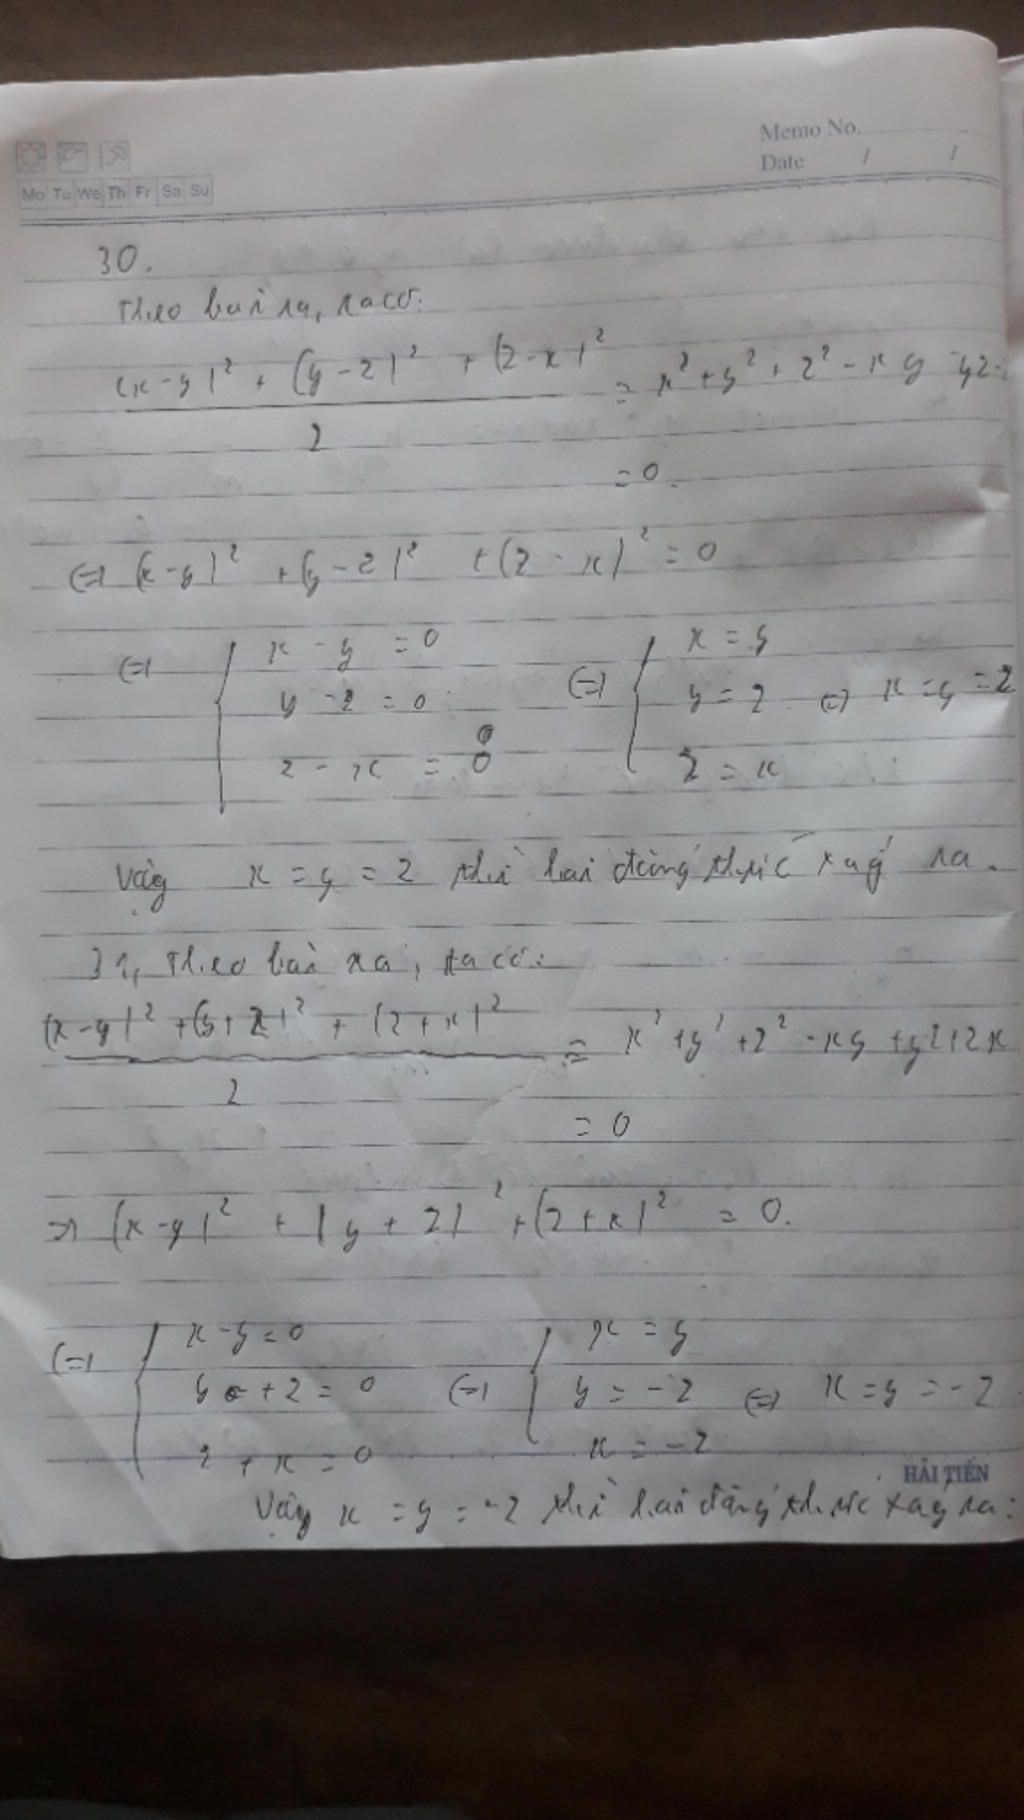 Memo No.
Date / /
Mo Tu We Th Fr Sa Su
30.
Theo bài ra, ta có:
((x-y)² + (y-z)² + (z-x)²)/2 = x² + y² + z² - xy - yz -
= 0.
(=) (x-y)² + (y-z)² + (z-x)² = 0
(=) { x - y = 0 (=) { x = y
y - z = 0 y = z (=) x = y = z
z - x = 0 z = x
Vậy x = y = z thì hai đẳng thức xảy ra.
31, Theo bài ra, ta có:
((x-y)² + (y+z)² + (z+x)²)/2 = x² + y² + z² - xy + yz + zx
= 0
=> (x-y)² + (y+z)² + (z+x)² = 0.
(=) { x-y=0 (=) { x = y
y + z = 0 y = -z (=) x = y = -z
z + x = 0 x = -z
HẢI TIẾN
Vậy x = y = -z thì hai đẳng thức xảy ra.